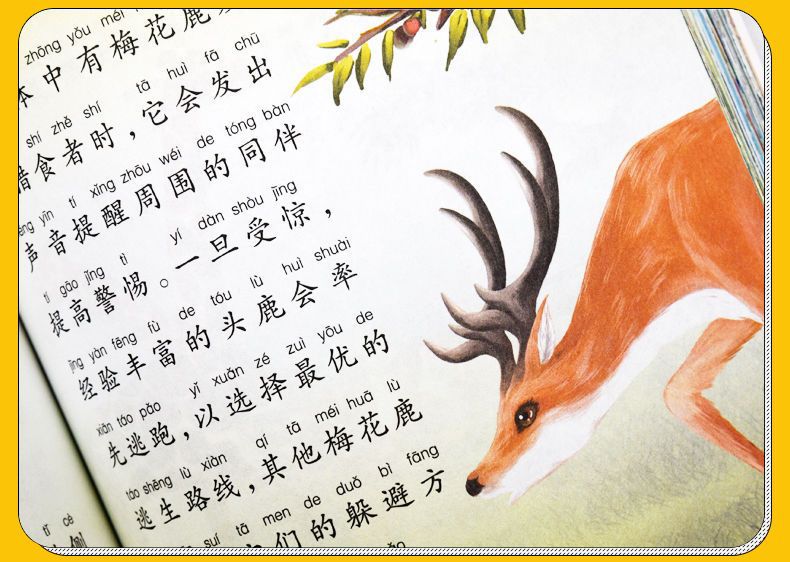 zhōng yǒu méi huā lù
本中有梅花鹿
shí zhě shí tā huì fā chū
猎食者时，它会发出
yīn tí xǐng zhōu wéi de tóng bàn
声音提醒周围的同伴
tí gāo jǐng tì yí dàn shòu jīng
提高警惕。一旦受惊，
jīng yàn fēng fù de tóu lù huì shuài
经验丰富的头鹿会率
xiān táo pǎo yǐ xuǎn zé zuì yōu de
先逃跑，以选择最优的
táo shēng lù xiàn qí tā méi huā lù
逃生路线，其他梅花鹿
suí tā men de duǒ bì fāng
们的躲避方
cè
侧